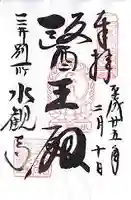 奉拝
平成廿五年
二月十日
醫王殿
三井別所
水観寺